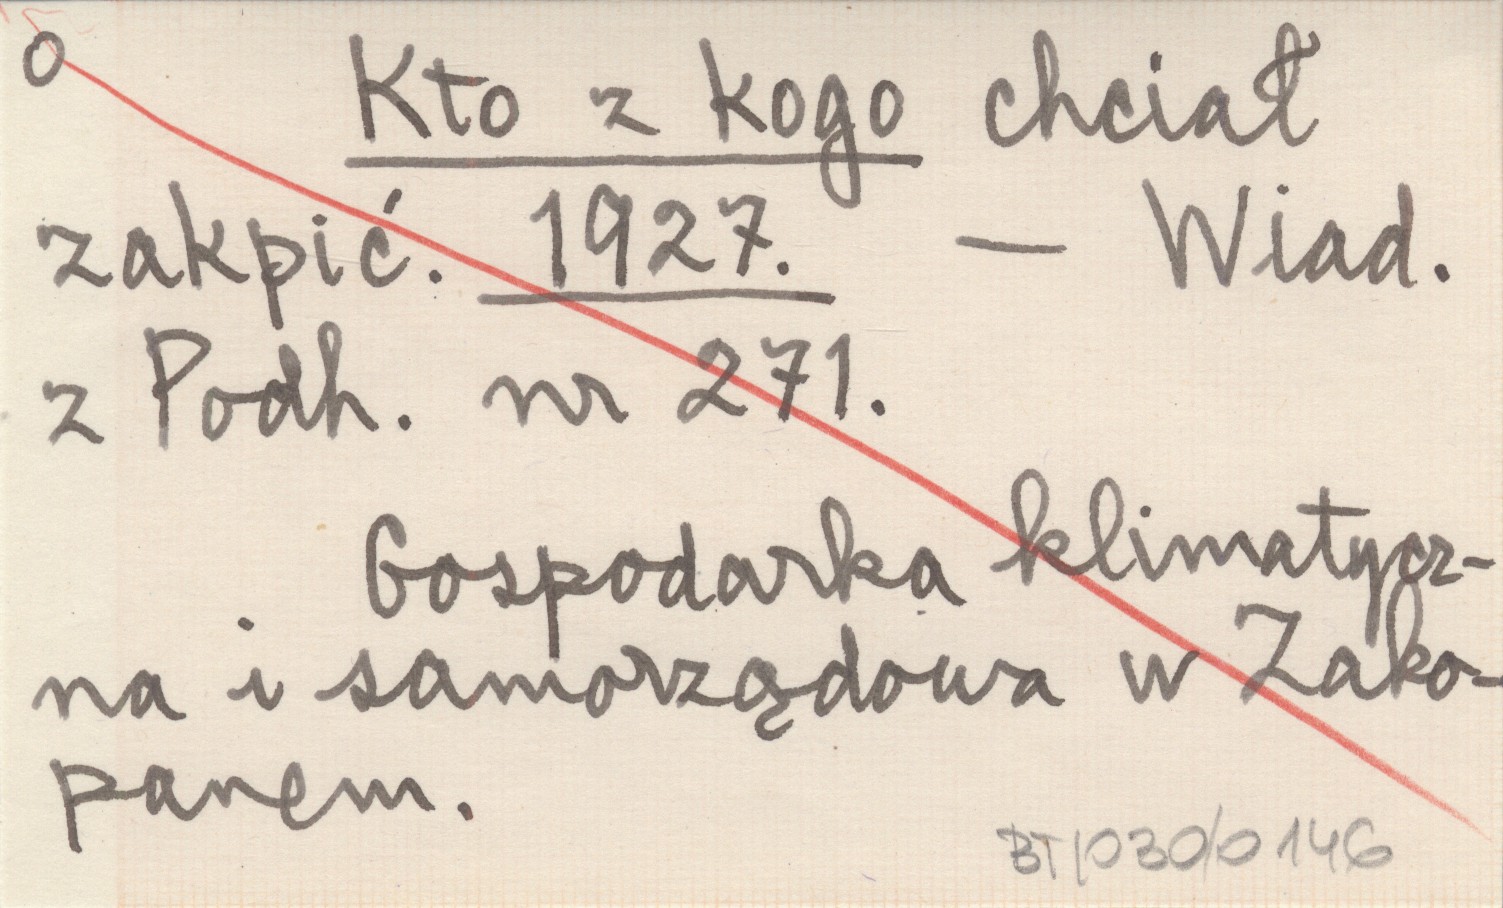 o Kto z kogo chciał
zakpić. 1927. — Wiad.
z Podh. nr 271.
Gospodarka klimatycz-
na i samorządowa w Zako-
panem.
BT/030/0146